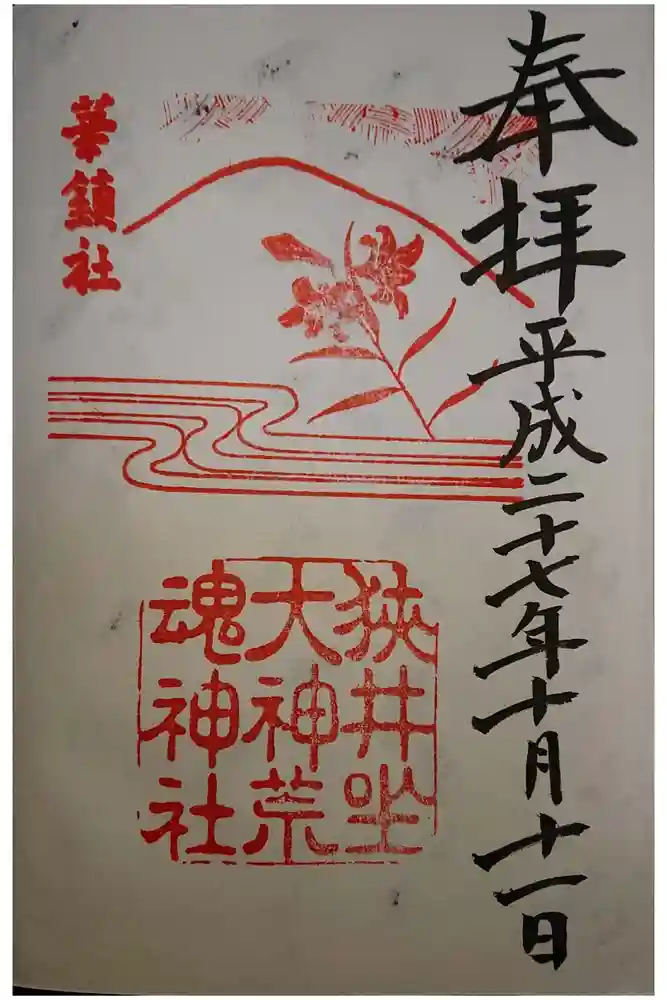 奉拝平成二十七年十月十一日
華鎮社
狭井坐
大神荒
魂神社